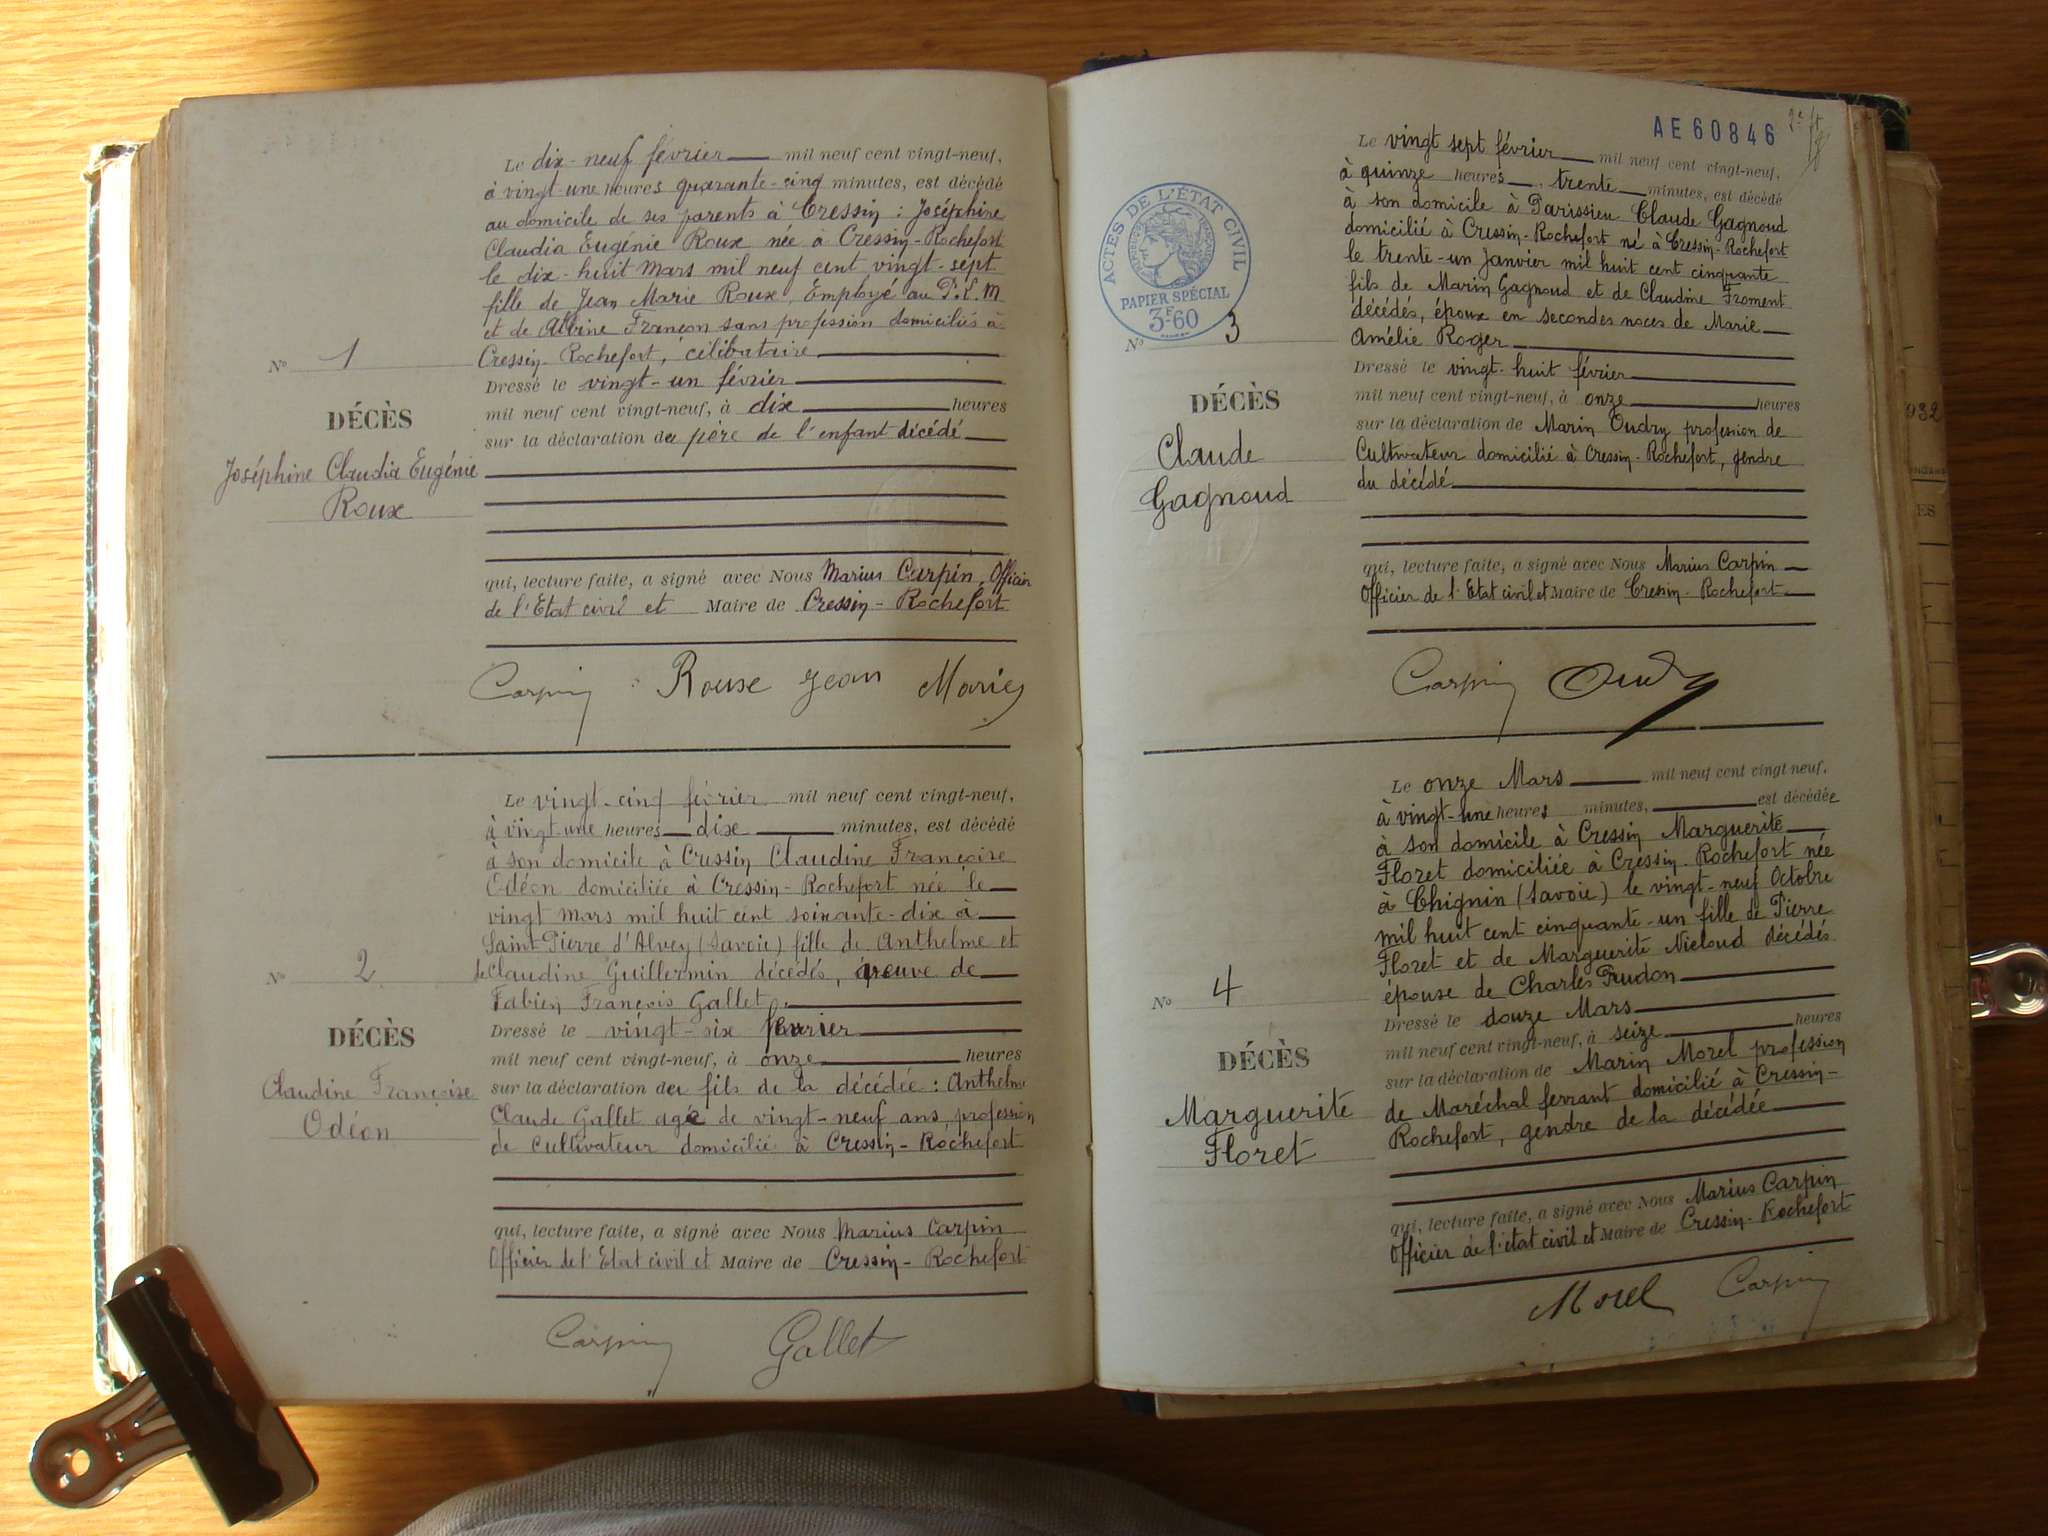 Le dix-neuf février mil neuf cent vingt-neuf,
à vingt-une heures quarante-cinq minutes, est décédé
au domicile de ses parents à Cressin : Joséphine
Claudia Eugénie Roux née à Cressin-Rochefort
le dix-huit Mars mil neuf cent vingt-sept
fille de Jean Marie Roux, Employé au P.L.M
et de Albine Françon sans profession domiciliés à
Cressin-Rochefort, célibataire
Dressé le vingt-un février
mil neuf cent vingt-neuf, à dix heures
sur la déclaration du père de l'enfant décédé
qui, lecture faite, a signé avec Nous Marius Carpin, Officier
de l'Etat civil et Maire de Cressin-Rochefort
No 1
DÉCÈS
Joséphine Claudia Eugénie
Roux
Carpin Roux Jean Marie
Le vingt-cinq février mil neuf cent vingt-neuf,
à vingt-une heures dix minutes, est décédé
à son domicile à Cressin Claudine Françoise
Odéon domiciliée à Cressin-Rochefort née le
vingt mars mil huit cent soixante-dix à
Saint-Pierre d'Alvey (Savoie) fille de Anthelme et
de Claudine Guillermin décédés, veuve de
Fabien François Gallet
Dressé le vingt-six février
mil neuf cent vingt-neuf, à onze heures
sur la déclaration du fils de la décédée : Anthelme
Claude Gallet agé de vingt-neuf ans, profession
de cultivateur domicilié à Cressin-Rochefort
qui, lecture faite, a signé avec Nous Marius Carpin
Officier de l'Etat civil et Maire de Cressin-Rochefort
No 2
DÉCÈS
Claudine Françoise
Odéon
Carpin Gallet
AE 60846
ACTES DE L'ÉTAT CIVIL
RÉPUBLIQUE FRANÇAISE
PAPIER SPÉCIAL
3F60
Le vingt sept février mil neuf cent vingt-neuf,
à quinze heures, trente minutes, est décédé
à son domicile à Parissieu Claude Gagnoud
domicilié à Cressin-Rochefort né à Cressin-Rochefort
le trente-un Janvier mil huit cent cinquante
fils de Marin Gagnoud et de Claudine Froment
décédés, époux en secondes noces de Marie
Amélie Roger
Dressé le vingt-huit février
mil neuf cent vingt-neuf, à onze heures
sur la déclaration de Marin Oudry profession de
Cultivateur domicilié à Cressin-Rochefort, gendre
du décédé
qui, lecture faite, a signé avec Nous Marius Carpin
Officier de l'Etat civil et Maire de Cressin-Rochefort
No 3
DÉCÈS
Claude
Gagnoud
Carpin Oudry
Le onze Mars mil neuf cent vingt-neuf,
à vingt-une heures minutes, est décédée
à son domicile à Cressin Marguerite
Floret domiciliée à Cressin-Rochefort née
à Chignin (Savoie) le vingt-neuf Octobre
mil huit cent cinquante-un fille de Pierre
Floret et de Marguerite Nicloud décédés
épouse de Charles Prudon
Dressé le douze Mars
mil neuf cent vingt-neuf, à seize heures
sur la déclaration de Marin Morel profession
de Maréchal ferrant domicilié à Cressin-
Rochefort, gendre de la décédée
qui, lecture faite, a signé avec Nous Marius Carpin
Officier de l'état civil et Maire de Cressin-Rochefort
No 4
DÉCÈS
Marguerite
Floret
Morel Carpin
932
ES